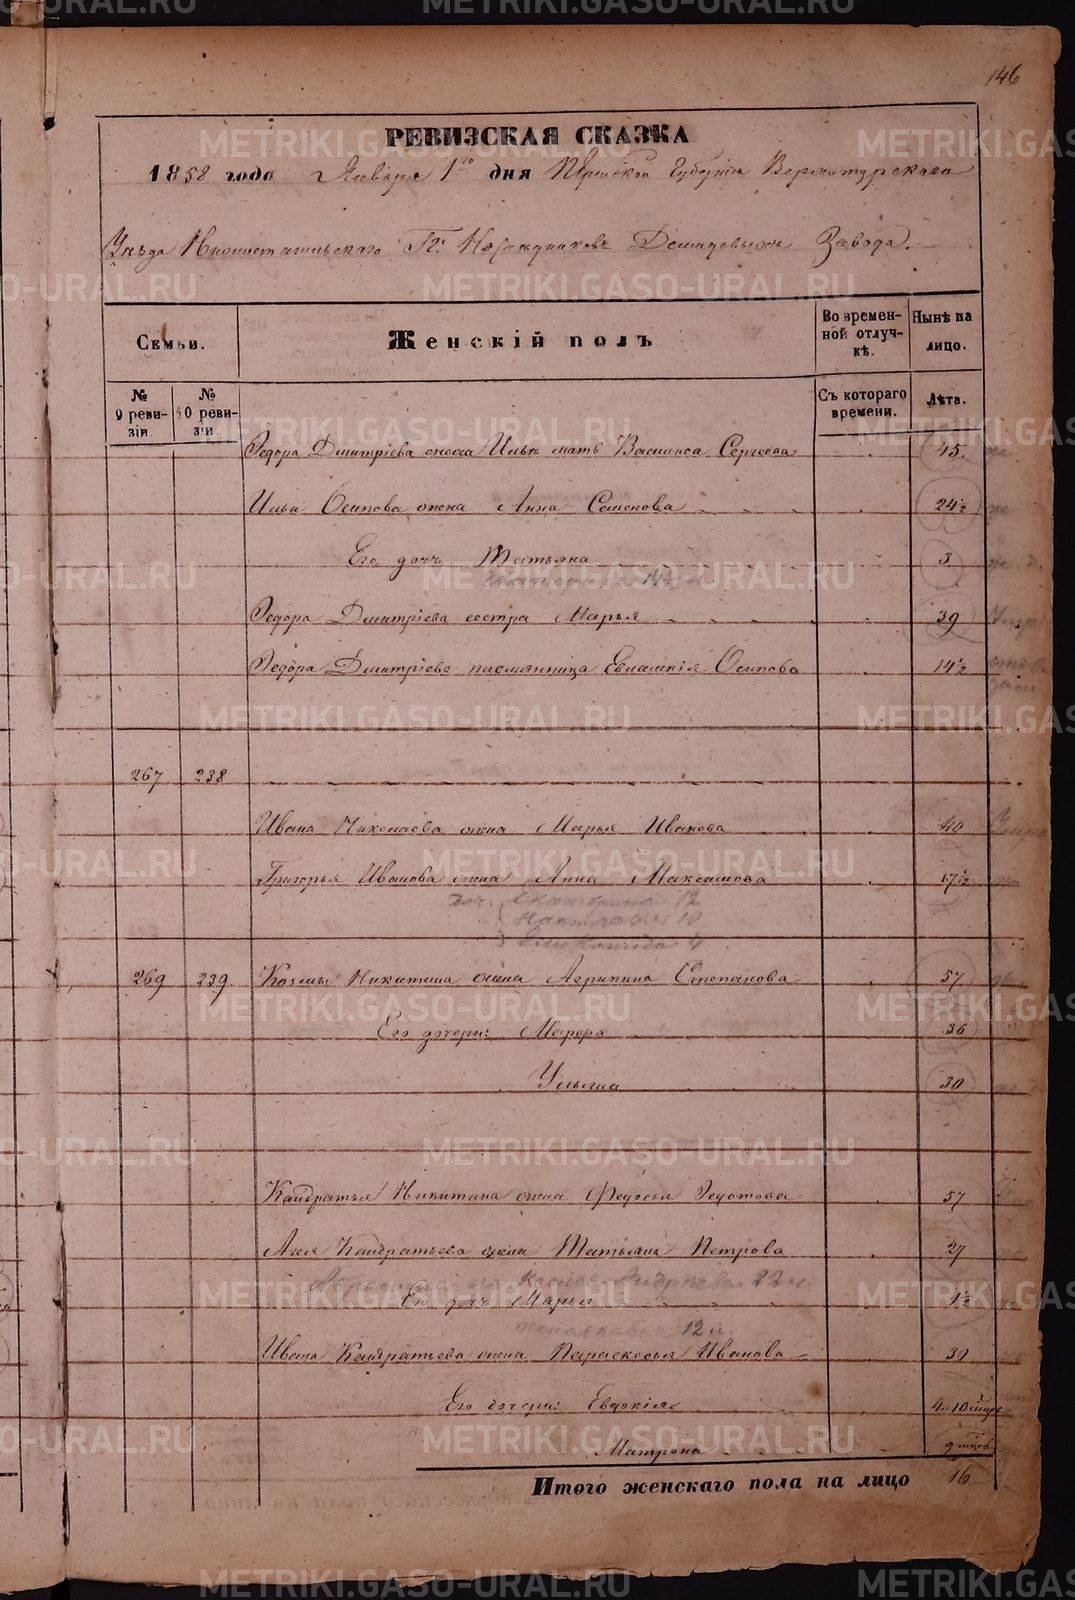 146
РЕВИЗСКАЯ СКАЗКА
1858 года Января 1го дня Пермской Губерніи Верхотурского
Уѣзда Нижнетагильскаго Гг. Наследниковъ Демидовыхъ Завода.
Семьи. Женскій полъ Во временной отлучкѣ. Нынѣ на лицо.
№ 9 ревизіи № 10 ревизіи Съ котораго времени. Лѣта.
Федора Дмитріева сноха Ильи мать Василиса Сергеева 45.
Ильи Осипова жена Анна Семенова 24½
Его дочь Татьяна 3
Федора Дмитріева сестра Марья 39
Федора Дмитріева племянница Евлампія Осипова 14½
267 238
Ивана Николаева жена Марья Иванова 40
Григорья Иванова жена Анна Максимова 17½
доч. Екатерина 12
Настасья 10
4
269 239. Козмы Никитина жена Агрипина Степанова 57
Его дочери: Мавра 36
Ульяна 30
Кандратья Никитина жена Федосья Федотова 57
Кандратьева жена Татьяна Петрова 27
Андреева 22 л.
Его дочь Марья 1½
12 л.
Ивана Кандратьева жена Параскевья Иванова 30
Его дочери: Евдокія 4 10 мѣсъ
Матрона 9 мѣсъ
Итого женскаго пола на лицо 16
METRIKI.GASO-URAL.RU